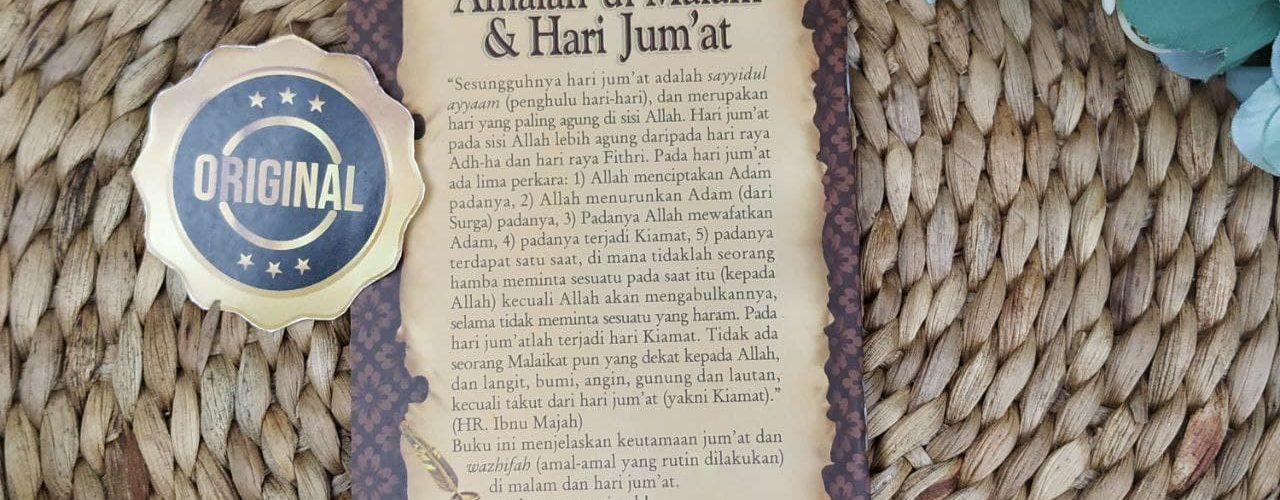 Amalan di Malam
& Hari Jum'at
ORIGINAL
"Sesungguhnya hari jum'at adalah sayyidul
ayyaam (penghulu hari-hari), dan merupakan
hari yang paling agung di sisi Allah. Hari jum'at
pada sisi Allah lebih agung daripada hari raya
Adh-ha dan hari raya Fithri. Pada hari jum'at
ada lima perkara: 1) Allah menciptakan Adam
padanya, 2) Allah menurunkan Adam (dari
Surga) padanya, 3) Padanya Allah mewafatkan
Adam, 4) padanya terjadi Kiamat, 5) padanya
terdapat satu saat, di mana tidaklah seorang
hamba meminta sesuatu pada saat itu (kepada
Allah) kecuali Allah akan mengabulkannya,
selama tidak meminta sesuatu yang haram. Pada
hari jum'atlah terjadi hari Kiamat. Tidak ada
seorang Malaikat pun yang dekat kepada Allah,
dan langit, bumi, angin, gunung dan lautan,
kecuali takut dari hari jum'at (yakni Kiamat)."
(HR. Ibnu Majah)
Buku ini menjelaskan keutamaan jum'at dan
wazhifah (amal-amal yang rutin dilakukan)
di malam dan hari jum'at.